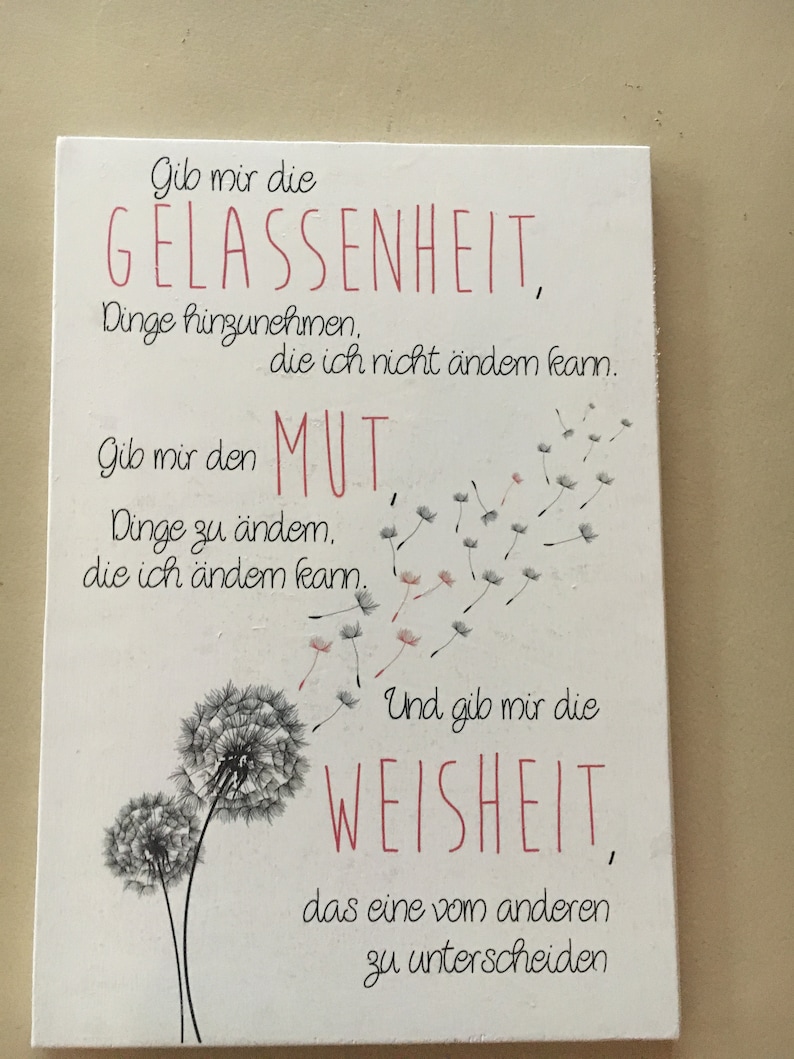 Gib mir die
GELASSENHEIT,
Dinge hinzunehmen,
die ich nicht ändern kann.
Gib mir den MUT,
Dinge zu ändern,
die ich ändern kann.
Und gib mir die
WEISHEIT,
das eine vom anderen
zu unterscheiden